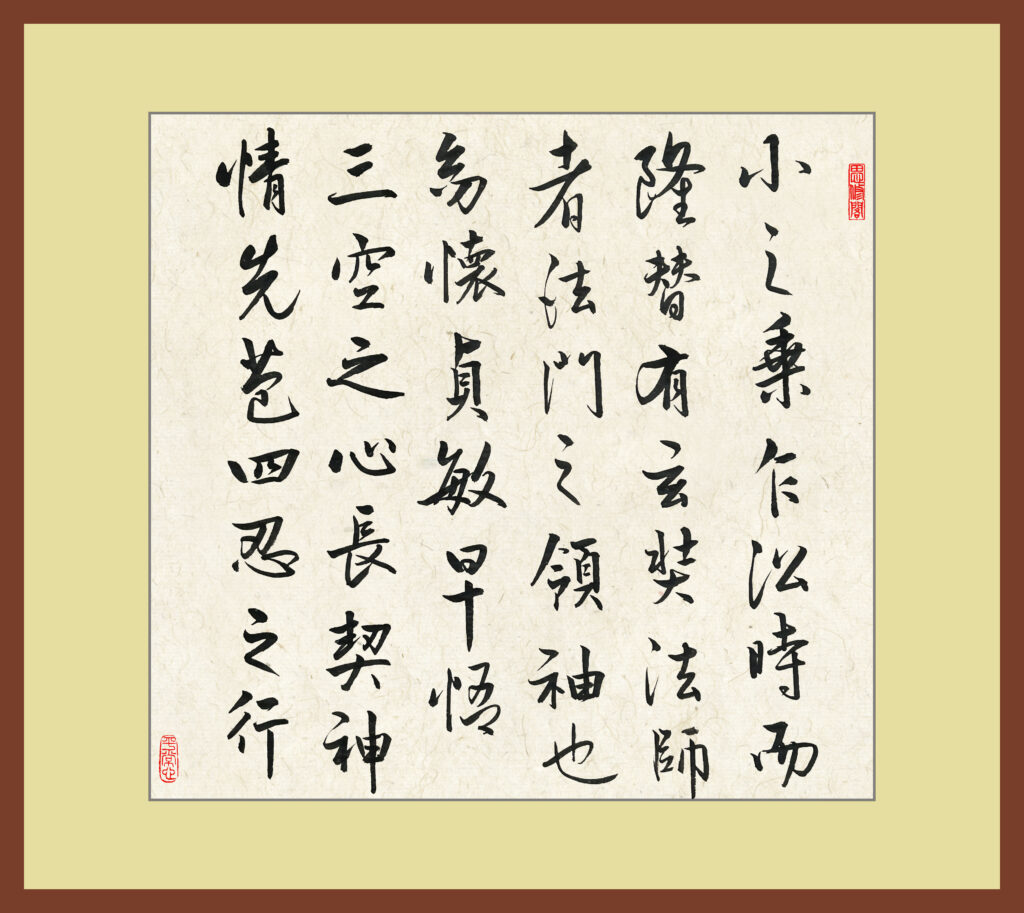 小之乘乍沿時而
隆替有玄奘法師
者法門之領袖也
幼懷貞敏早悟
三空之心長契神
情先苞四忍之行
平常心